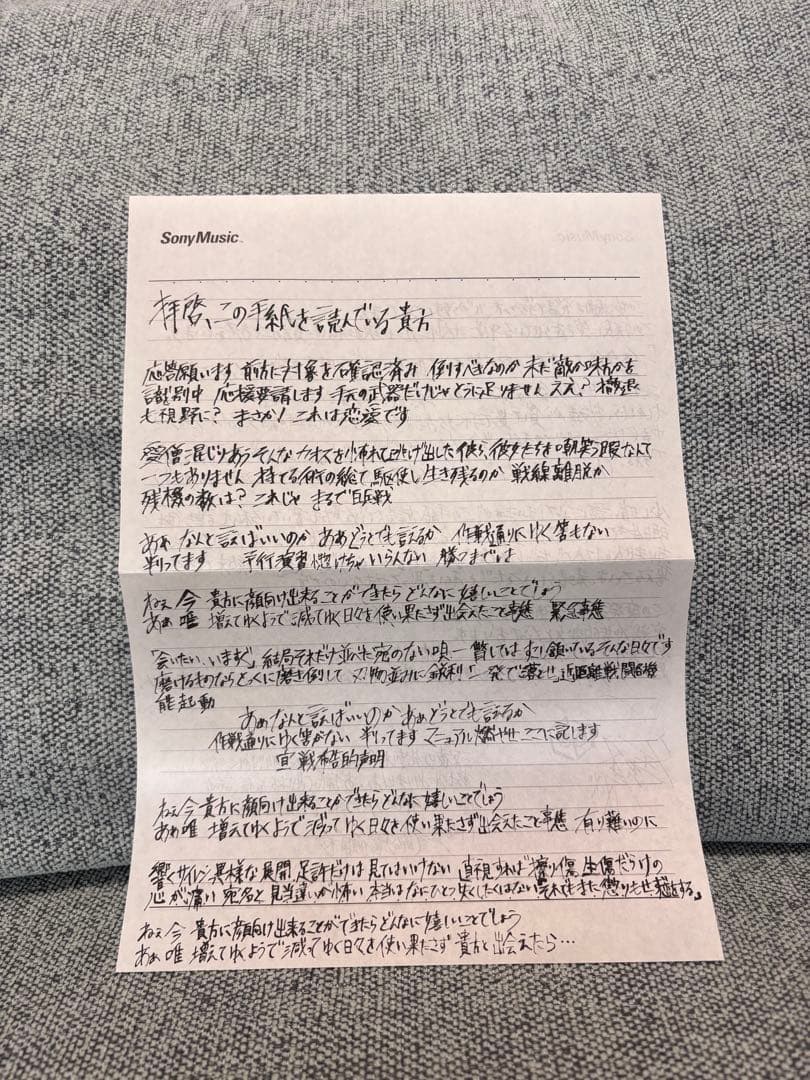 SonyMusic
拝啓、この手紙を読んでいる貴方
応答願います 前方に対象を確認済み 倒すべきなのか 未だ敵か味方かを
識別中 応援要請します 手元の武器だけじゃとうに足りません ええ? 撤退
も視野に? まさか! これは恋愛です
愛憎混じりあう そんなカオスを怖れて逃げ出した彼ら、彼女たちを嘲笑う暇なんて
一つもありません 持てる術の総て駆使し生き残るのか 戦線離脱か
残機の数は? これじゃ まるで白兵戦
あぁ なんと言えばいいのか ああどうとでも言えるか 作戦通りにゆく筈もない
判ってます 平行演習 惚けちゃいらんない 勝つまでは
ねぇ 今 貴方に顔向け出来ることができたらどんなに嬉しいことでしょう
あぁ 唯 増えてゆくようで減ってゆく日々を使い果たさず出会えたこと事態 緊急事態
「会いたい、いますぐ」結局それだけ並べた宛のない唄 一瞥しては すり鉢いているそんな日々です
磨けるものならとくに磨き倒して 刃物並みに鋭利! 一発で落とし 近距離戦闘機
能起動
あぁなんと言えばいいのか あぁどうとでも言えるか
作戦通りにゆく筈がない 判ってます マニュアル燃やせ ここに記します
宣戦布告的声明
ねぇ今 貴方に顔向け出来ることができたらどんなに嬉しいことでしょう
あぁ唯 増えてゆくようで減ってゆく日々を使い果たさず出会えたこと事態 有り難いのに
響くサイレン 異様な展開 足許だけは見てはいけない 直視すれば擦り傷 生傷だらけの
心が痛い 宛名と見当違いが怖い 本当はなにひとつ失くしたくはない それでもまた懲りもせず
ねぇ 今 貴方に顔向け出来ることができたらどんなに嬉しいことでしょう
あぁ 唯 増えてゆくようで減ってゆく日々を使い果たさず 貴方と出会えたら…